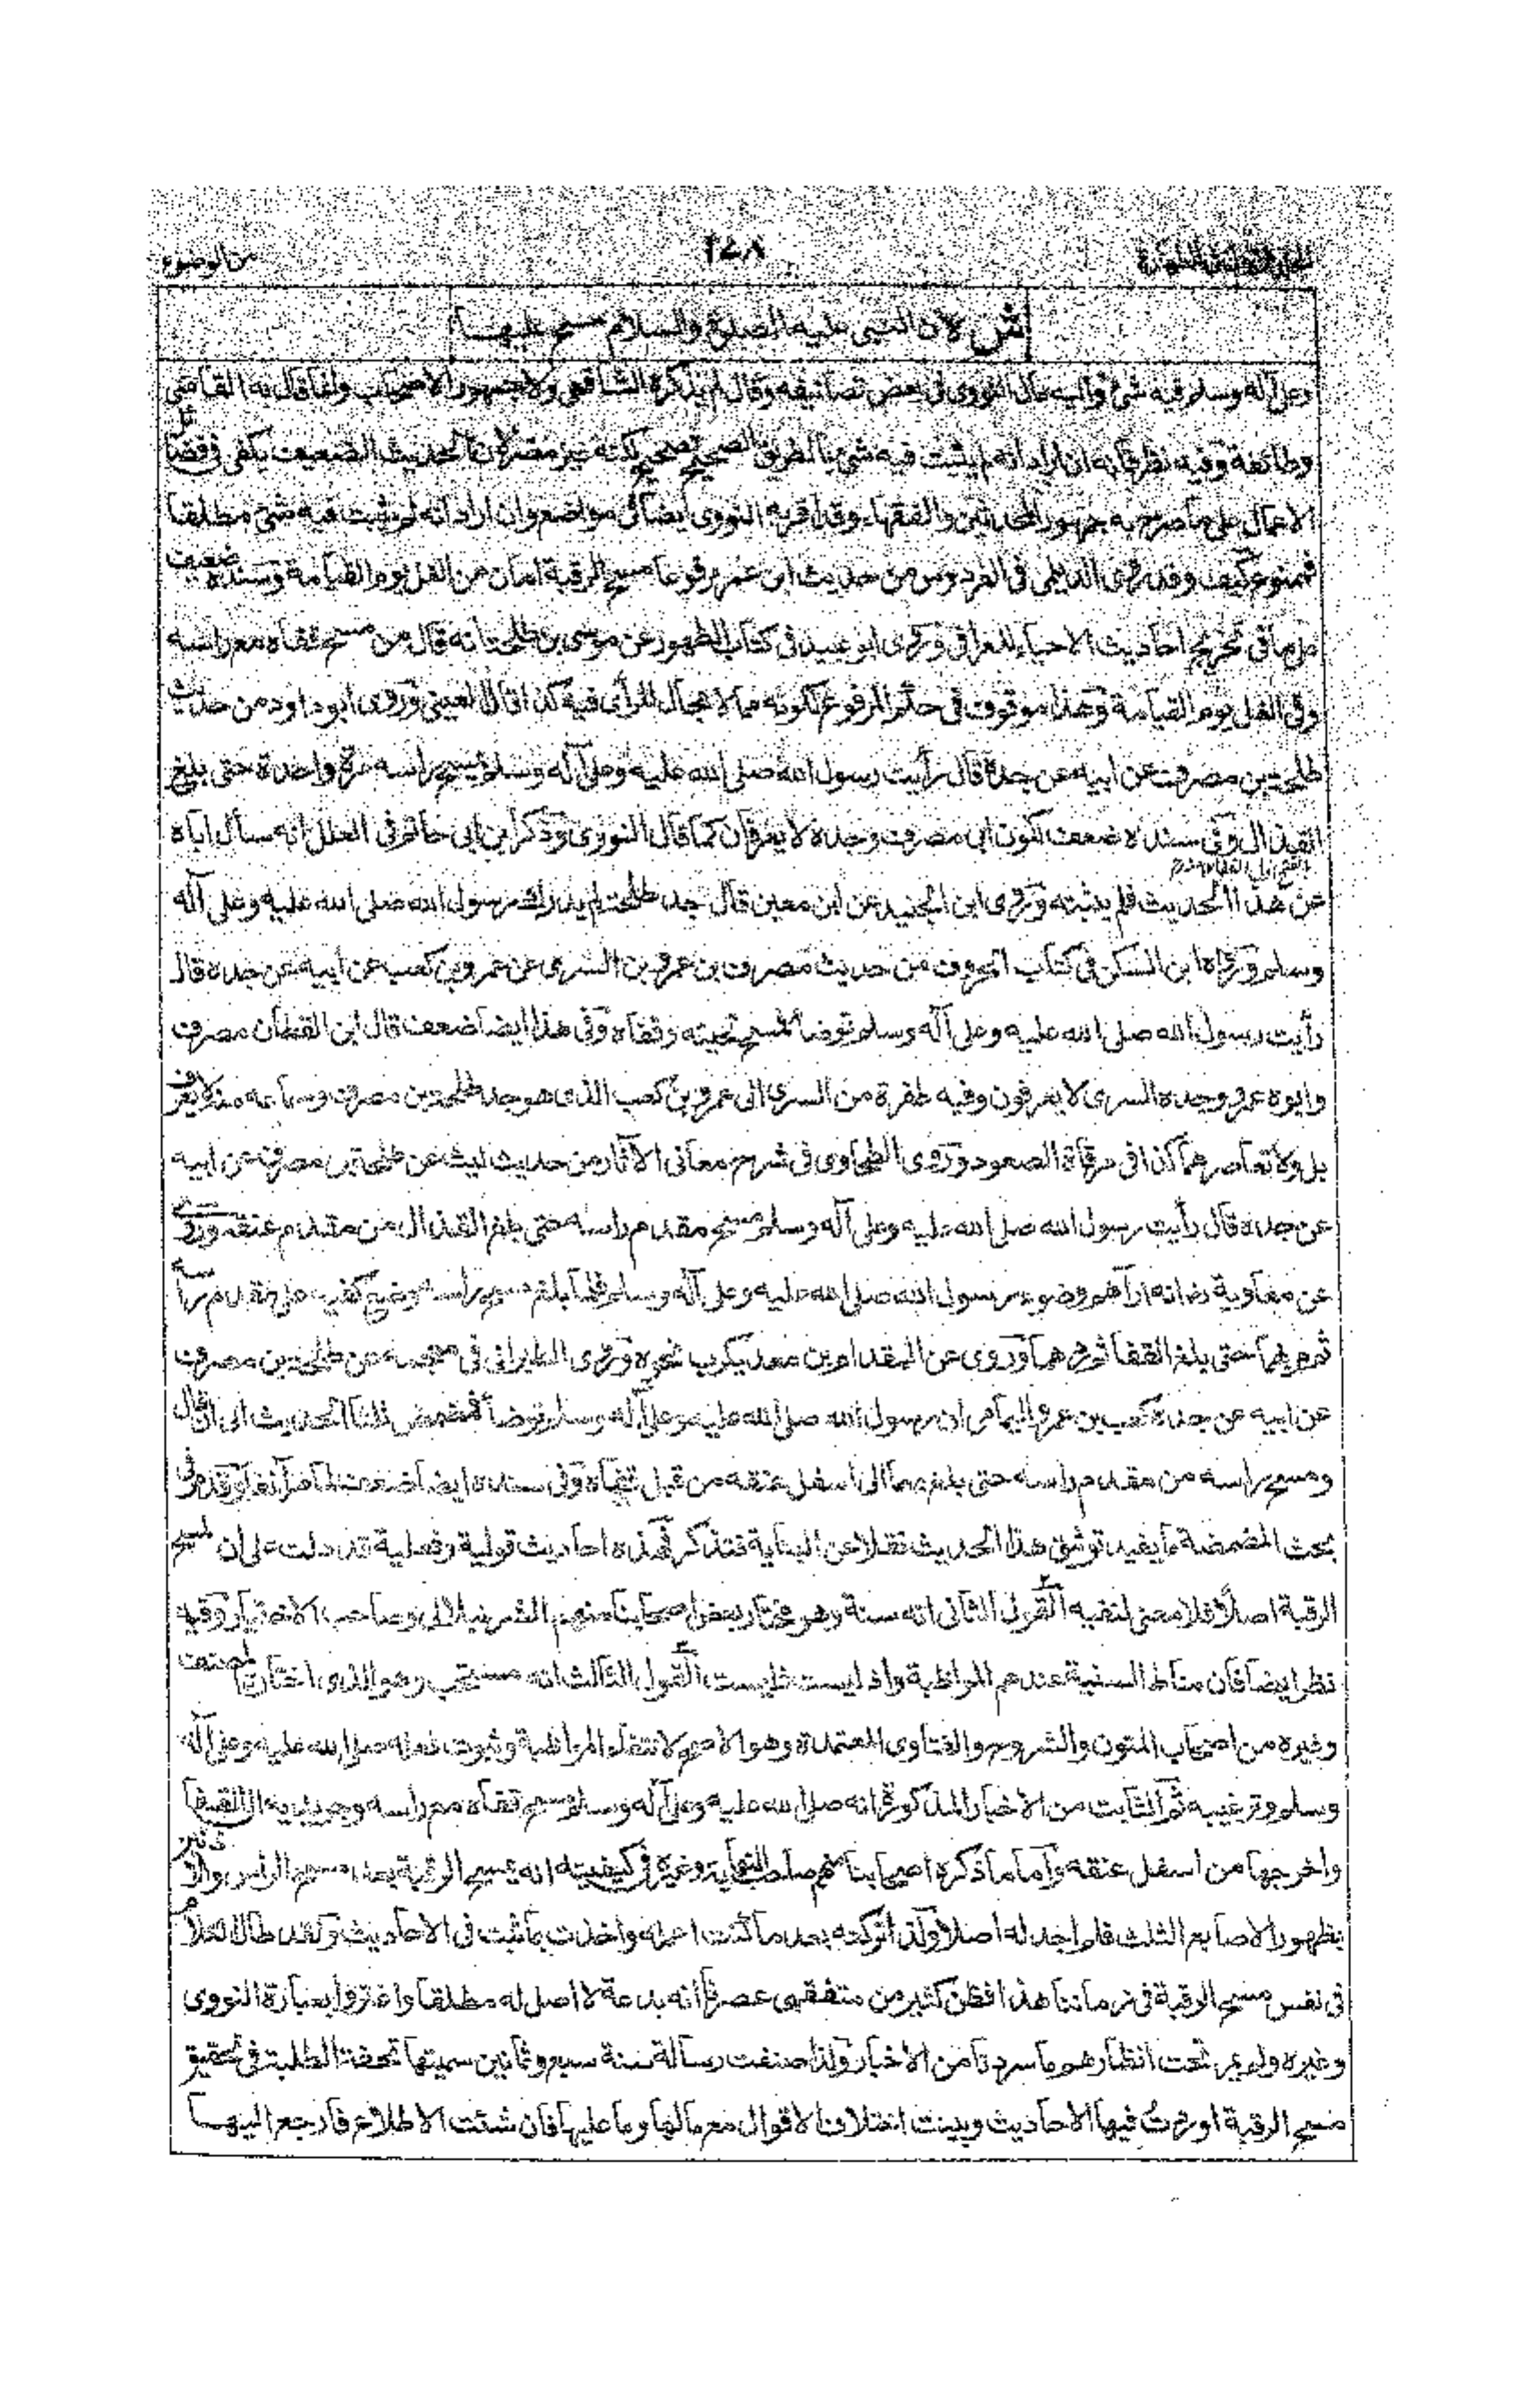 ١٧٨
من الوضوء
ش لان النبى عليه الصلوة والسلام مسح عليها
وعلى آله وسلم فيه شئ واليه مال النووى فى بعض تصانيفه وقال لم يذكره الشافعى ولا جمهور الاصحاب وانما قال به القاضى
وطائفة وفيه نظر فانه ان اراد انه لم يثبت فيه شئ بالطريق الصحيح فصحيح لكنه غير مضر لان الحديث الضعيف يكفى فى فضائل
الاعمال على ما صرح به جمهور المحدثين والفقهاء وقد اقر به النووى ايضا فى مواضع وان اراد انه لم يثبت فيه شئ مطلقا
فممنوع كيف وقد روى الديلمى فى الفردوس من حديث ابن عمر مرفوعا مسح الرقبة امان من الغل يوم القيامة وسنده ضعيف
على ما فى تخريج احاديث الاحياء للعراقى وروى ابو عبيد فى كتاب الطهور عن موسى بن طلحة انه قال من مسح قفاه مع راسه
وقى الغل يوم القيامة وهذا موقوف فى حكم المرفوع لكونه مما لا مجال للرأى فيه كذا قال العينى وروى ابو داود من حديث
طلحة بن مصرف عن ابيه عن جده قال رأيت رسول الله صلى الله عليه وعلى آله وسلم يمسح راسه مرة واحدة حتى بلغ
القذال وفى سنده ضعف لكون ابى مصرف وجده لا يعرفان كما قال النووى وذكر ابن ابى حاتم فى العلل انه سأل اباه
عن هذا الحديث فلم يثبته وروى ابن الجنيد عن ابن معين قال جد طلحة لم يدرك رسول الله صلى الله عليه وعلى آله
وسلم ورواه ابن السكن فى كتاب الحروف من حديث مصرف بن عمرو بن السرى عن عمرو بن كعب عن ابيه عن جده قال
رأيت رسول الله صلى الله عليه وعلى آله وسلم توضأ فمسح لحيته وقفاه وفى هذا ايضا ضعف قال ابن القطان مصرف
وابوه عمرو وجده السرى لا يعرفون وفيه طفرة من السرى الى عمرو بن كعب الذى هو جد طلحة بن مصرف وسماعه منه لا يعرف
بل ولا تعاصرهما كذا فى مرقاة الصعود وروى الطحاوى فى شرح معانى الآثار من حديث ليث عن طلحة بن مصرف عن ابيه
عن جده قال رأيت رسول الله صلى الله عليه وعلى آله وسلم مسح مقدم راسه حتى بلغ القذال من مقدم عنقه وروى
عن معاوية رض انه اراهم وضوء رسول الله صلى الله عليه وعلى آله وسلم فلما بلغ مسح راسه وضع كفيه على مقدم رأسه
ثم مر بهما حتى بلغ القفا ثم ردهما وروى عن المقدام بن معديكرب نحوه وروى الطبرانى فى معجمه عن طلحة بن مصرف
عن ابيه عن جده كعب بن عمرو اليمامى ان رسول الله صلى الله عليه وعلى آله وسلم توضأ فمضمض ثلثا الحديث الى ان قال
ومسح راسه من مقدم راسه حتى بلغ بهما الى اسفل عنقه من قبل قفاه وفى سنده ايضا ضعف لما مر آنفا وقد مر فى
بحث المضمضة ما يفيد توثيق هذا الحديث نقلا عن البناية فتذكر فهذه احاديث قولية وفعلية قد دلت على ان لمسح
الرقبة اصلا فلا معنى لنفيه القول الثانى انه سنة وهو مختار بعض اصحابنا منهم الشرنبلالى وصاحب الاختيار وفيه
نظر ايضا فان مناط السنية عندهم المواظبة واذ ليست فليست القول الثالث انه مستحب وهو الذى اختاره المصنف
وغيره من اصحاب المتون والشروح والفتاوى المعتمدة وهو الاصح لانتفاء المواظبة وثبوت فعله صلى الله عليه وعلى آله
وسلم وترغيبه ثم الثابت من الاخبار المذكورة انه صلى الله عليه وعلى آله وسلم مسح قفاه مع راسه وجر يديه الى القفا
واخرجها من اسفل عنقه واما ما ذكره اصحابنا منهم صاحب النهاية وغيره فى كيفيته انه يمسح الرقبة بعد مسح الراس والاذنين
بظهور الاصابع الثلث فلم اجد له اصلا ولذا تركته بعد ما كنت اعمله واخذت بما ثبت فى الاحاديث ولقد طال الكلام
فى نفس مسح الرقبة فى زماننا هذا فظن كثير من متفقهى عصرنا انه بدعة لا اصل له مطلقا واغتروا بعبارة النووى
وغيره ولم يمر تحت انظارهم ما سردنا من الاخبار ولذا صنفت رسالة سنة سبع وثمانين سميتها تحفة الطلبة فى تحقيق
مسح الرقبة اوردت فيها الاحاديث وبينت اختلاف الاقوال مع ما لها وما عليها فان شئت الاطلاع فارجع اليها